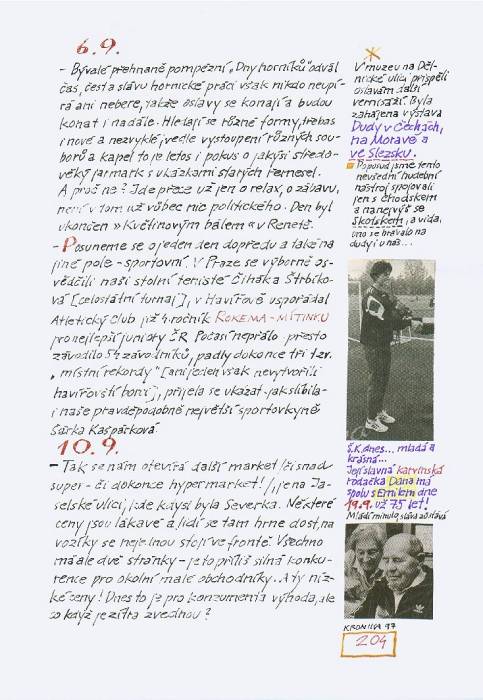 6.9.
- Bývalé přehnaně pompézní „Dny horníků" odvál
čas, čest a slávu hornické práci však nikdo neupí-
rá ani nebere, takže oslavy se konají a budou
konat i nadále. Hledají se různé formy, třebas
i nové a nezvyklé, vedle vystoupení různých sou-
borů a kapel to je letos i pokus o jakýsi středo-
věký jarmark s ukázkami starých řemesel.
A proč ne? Jde přece už jen o relax, o zábavu,
není v tom už vůbec nic politického. Den byl
ukončen » Květinovým bálem « v Renetě.
- Posuneme se o jeden den dopředu a také na
jiné pole - sportovní. V Praze se výborně os-
vědčili naši stolní tenisté Čihák a Štrbíko-
vá [celostátní turnaj], v Havířově uspořádal
Atletický Club již 4. ročník ROKEMA - MÍTINKU
pro nejlepší juniory ČR. Počasí nepřálo - přesto
závodilo 54 závodníků, padly dokonce tři tzv.
„místní rekordy" [ani jeden však nevytvořili
havířovští borci], přijela se ukázat - jak slíbila -
i naše pravděpodobně největší sportovkyně
Šárka Kašpárková.
10.9.
- Tak se nám otevírá další market /či snad
super - či dokonce hypermarket! /, je na Ja-
selské ulici, kde kdysi byla Severka. Některé
ceny jsou lákavé a lidí se tam hrne dost, na
vozíky se nejednou stojí ve frontě. Všechno
má ale dvě stránky - je to příliš silná konku-
rence pro okolní malé obchodníky. A ty níz-
ké ceny! Dnes to je pro konzumenta výhoda, ale
co když je zítra zvednou?
V muzeu na Děl-
nické ulici přispěli
oslavám další
vernisáží. Byla
zahájena výstava
Dudy v Čechách,
na Moravě a
ve Slezsku.
Doposud jsme tento
nevšední hudební
nástroj spojovali
jen s Chodskem
a nanejvýš se
Skotskem, a vida,
ono se hrávalo na
dudy i u nás...
Š.K. dnes... mladá a
krásná...
Její slavná karvinská
rodačka Dana má
spolu s Emilem dne
19.9. už 75 let!
Mládí minulo, sláva zůstává
KRONIKA 97
204